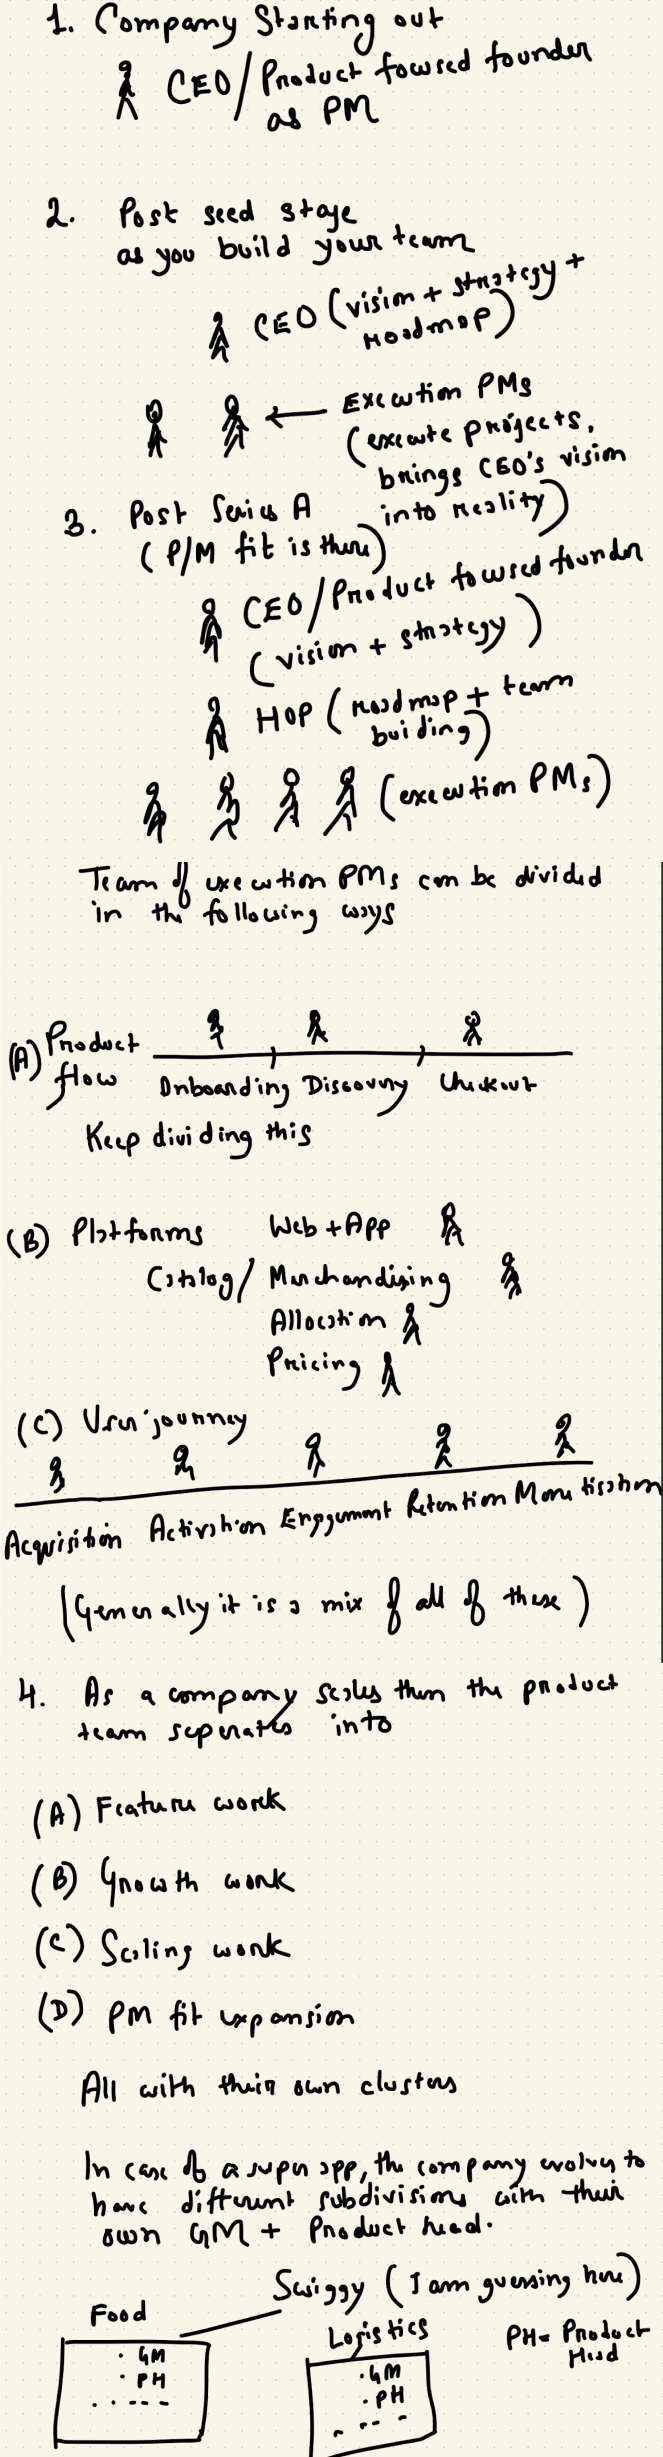 1. Company Starting out
CEO/Product focused founder
as PM
2. Post seed stage
as you build your team
CEO (vision + strategy +
roadmap)
Execution PMs
(execute projects,
brings CEO's vision
into reality)
3. Post Series A
(P/M fit is there)
CEO/Product focused founder
(vision + strategy)
HOP (roadmap + team
buiding)
(execution PMs)
Team of execution PMs can be divided
in the following ways
(A) Product
flow
Onboarding Discovery Checkout
Keep dividing this
(B) Platforms Web + App
Catalog/ Merchandising
Allocation
Pricing
(C) User journey
Acquisition Activation Engagement Retention Monetisation
(Generally it is a mix of all of these)
4. As a company scales then the product
team seperates into
(A) Feature work
(B) Growth work
(C) Scaling work
(D) PM fit expansion
All with their own clusters
In case of a super app, the company evolves to
have different subdivisions with their
own GM + Product head.
Swiggy (I am guessing here)
Food
· GM
· PH
Logistics
· GM
· PH
PH = Product
Head